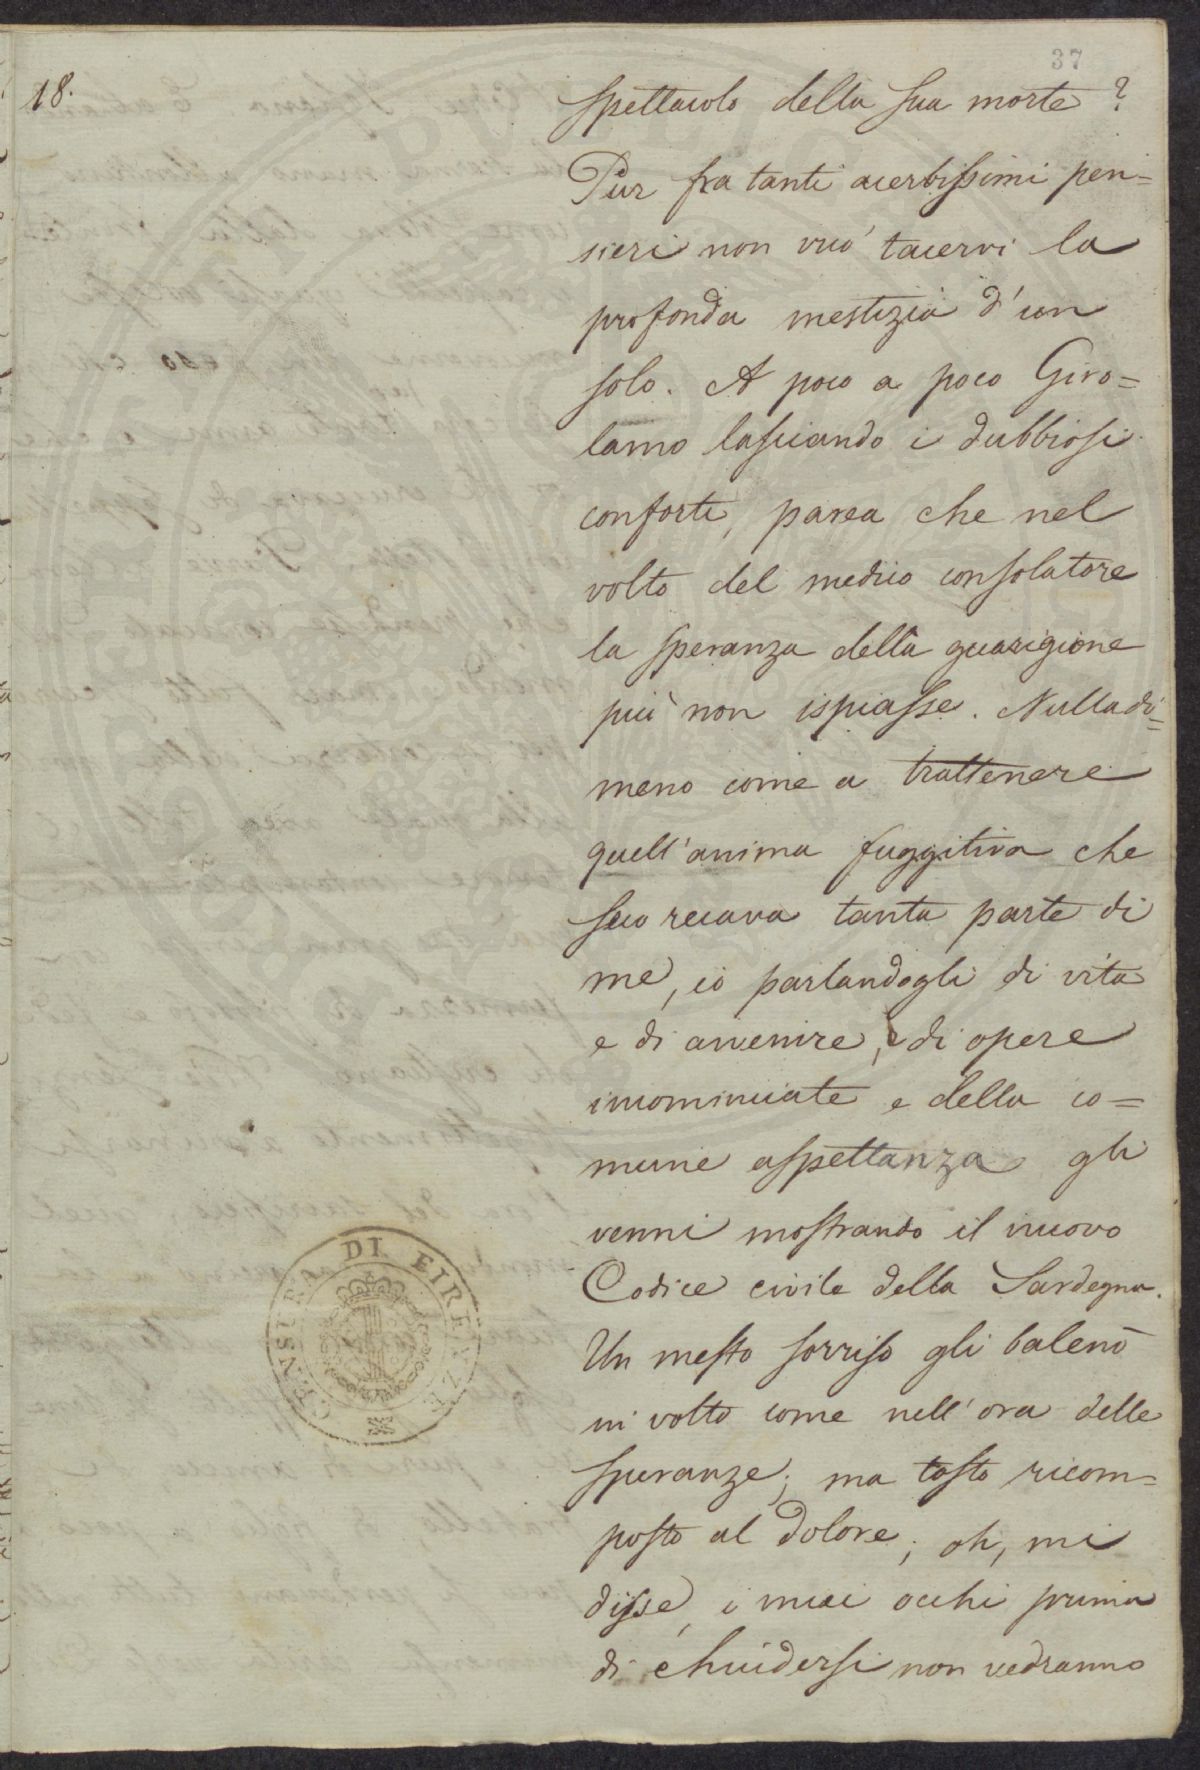 37
18.
spettacolo della sua morte?
Pur fra tanti acerbissimi pen=
sieri non vuò tacervi la
profonda mestizia d'un
solo. A poco a poco Giro=
lamo lasciando i dubbiosi
conforti, parea che nel
volto del medico consolatore
la speranza della guarigione
più non ispiasse. Nulladi=
meno come a trattenere
quell'anima fuggitiva che
seco recava tanta parte di
me, io parlandogli di vita
e di avvenire, e di opere
incominciate e della co=
mune aspettanza gli
venni mostrando il nuovo
Codice civile della Sardegna.
Un mesto sorriso gli balenò
in volto come nell'ora delle
speranze; ma tosto ricom=
posto al dolore; oh, mi
disse, i miei occhi prima
di chiudersi non vedranno
CENSURA DI FIRENZE